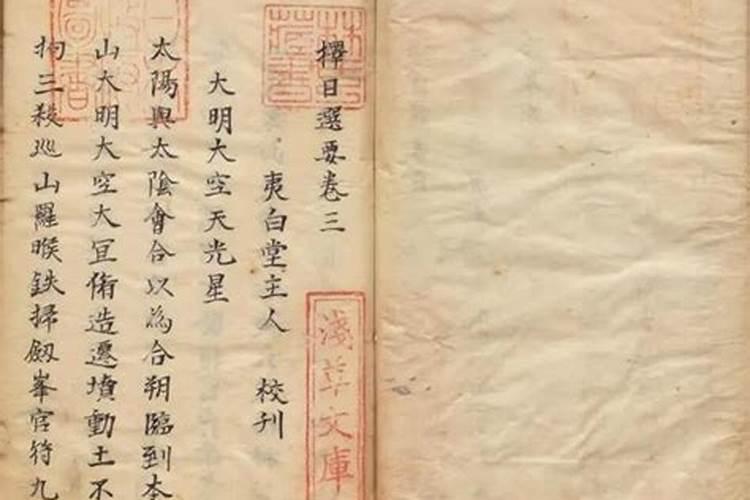 擇日選要卷三
夷白堂主人 校刊
大明大空天光星
太陽與太陰會合以為合朔臨到本
山大明大空大冝脩造遷墳動土不
拘三殺巡山羅睺鉄掃劔峯官符九
淺草文庫